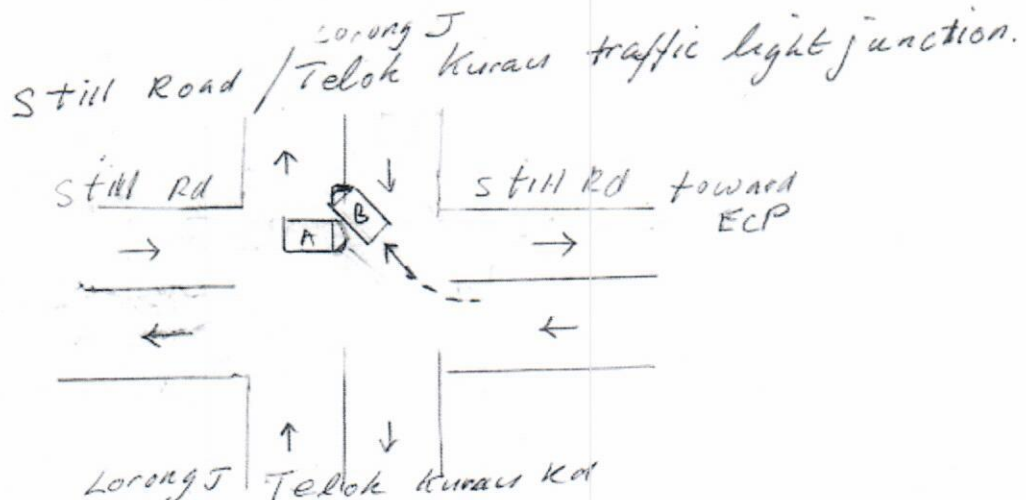 Lorong J
Still Road / Telok Kurau traffic light junction.
Still Rd
Still Rd toward
ECP
B
A
Lorong J Telok Kurau Rd